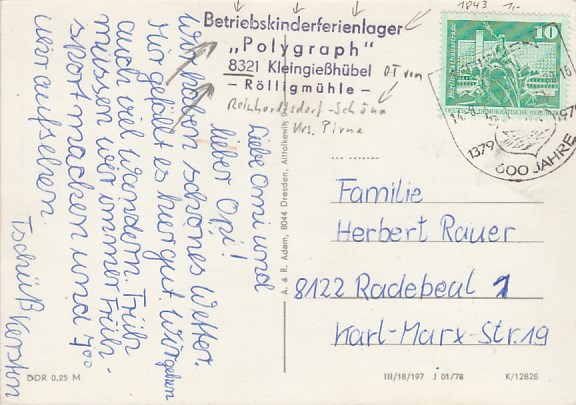 Betriebskinderferienlager
„Polygraph"
8321 Kleingießhübel
- Rölligmühle -
OT von
Reinhardtsdorf-Schöna
Krs. Pirna
1843 1,-
10
DEUTSCHE DEMOKRATISCHE REPUBLIK
1379
1979
600 JAHRE
Liebe Omi und
lieber Opi!
Wir haben schönes Wetter.
Mir gefällt es hier gut. Wir gehen
auch viel wandern. Früh
müssen wir immer Früh-
sport machen und 7⁰⁰
Uhr aufstehen.
Tschüß Karsten
Familie
Herbert Rauer
8122 Radebeul 1
Karl-Marx-Str. 19
A. & R. Adam, 8044 Dresden, Altlockwitz
DDR 0,25 M
III/18/197 J 01/78 K/12825